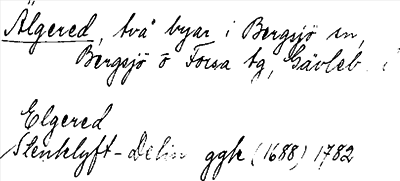 Älgered, två byar i Bergsjö sn,
Bergsjö o Forsa tg, Gävleb.
Elgered
ggk (1688) 1782